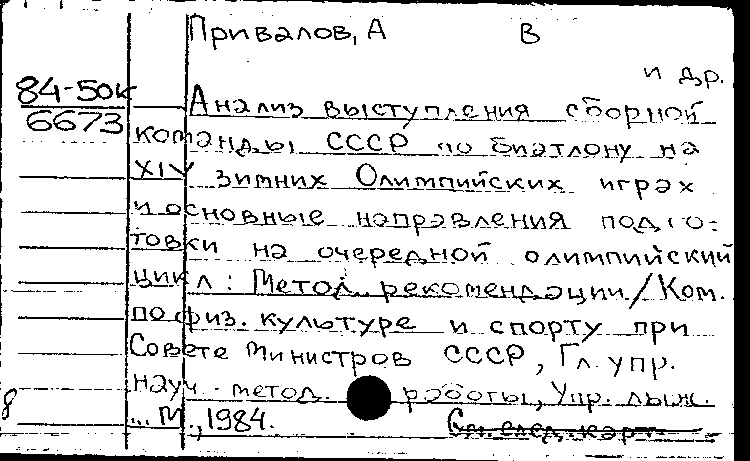 Привалов, А В
и др.
84-50к
6673
Анализ выступления сборной
команды СССР по биатлону на
XIV зимних Олимпийских играх
и основные направления подго-
товки на очередной олимпийский
цикл: Метод. рекомендации/Ком.
по физ. культуре и спорту при
Совете Министров СССР, Гл. упр.
науч.-метод. работы, Упр. лыж.
... М., 1984. См. след. карт.
8